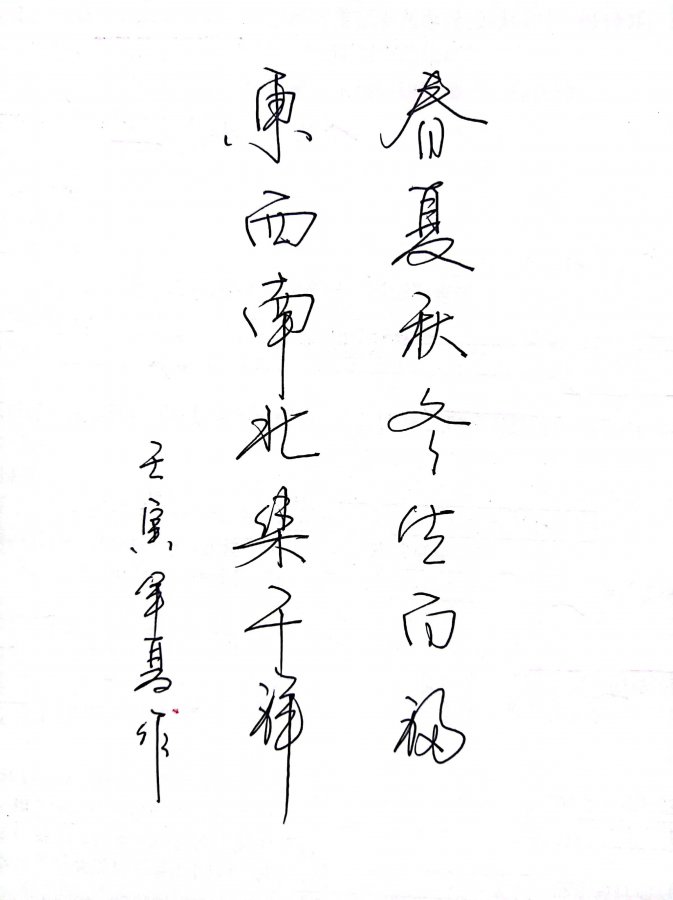 春夏秋冬生百福
東西南北集千祥
壬寅年夏作